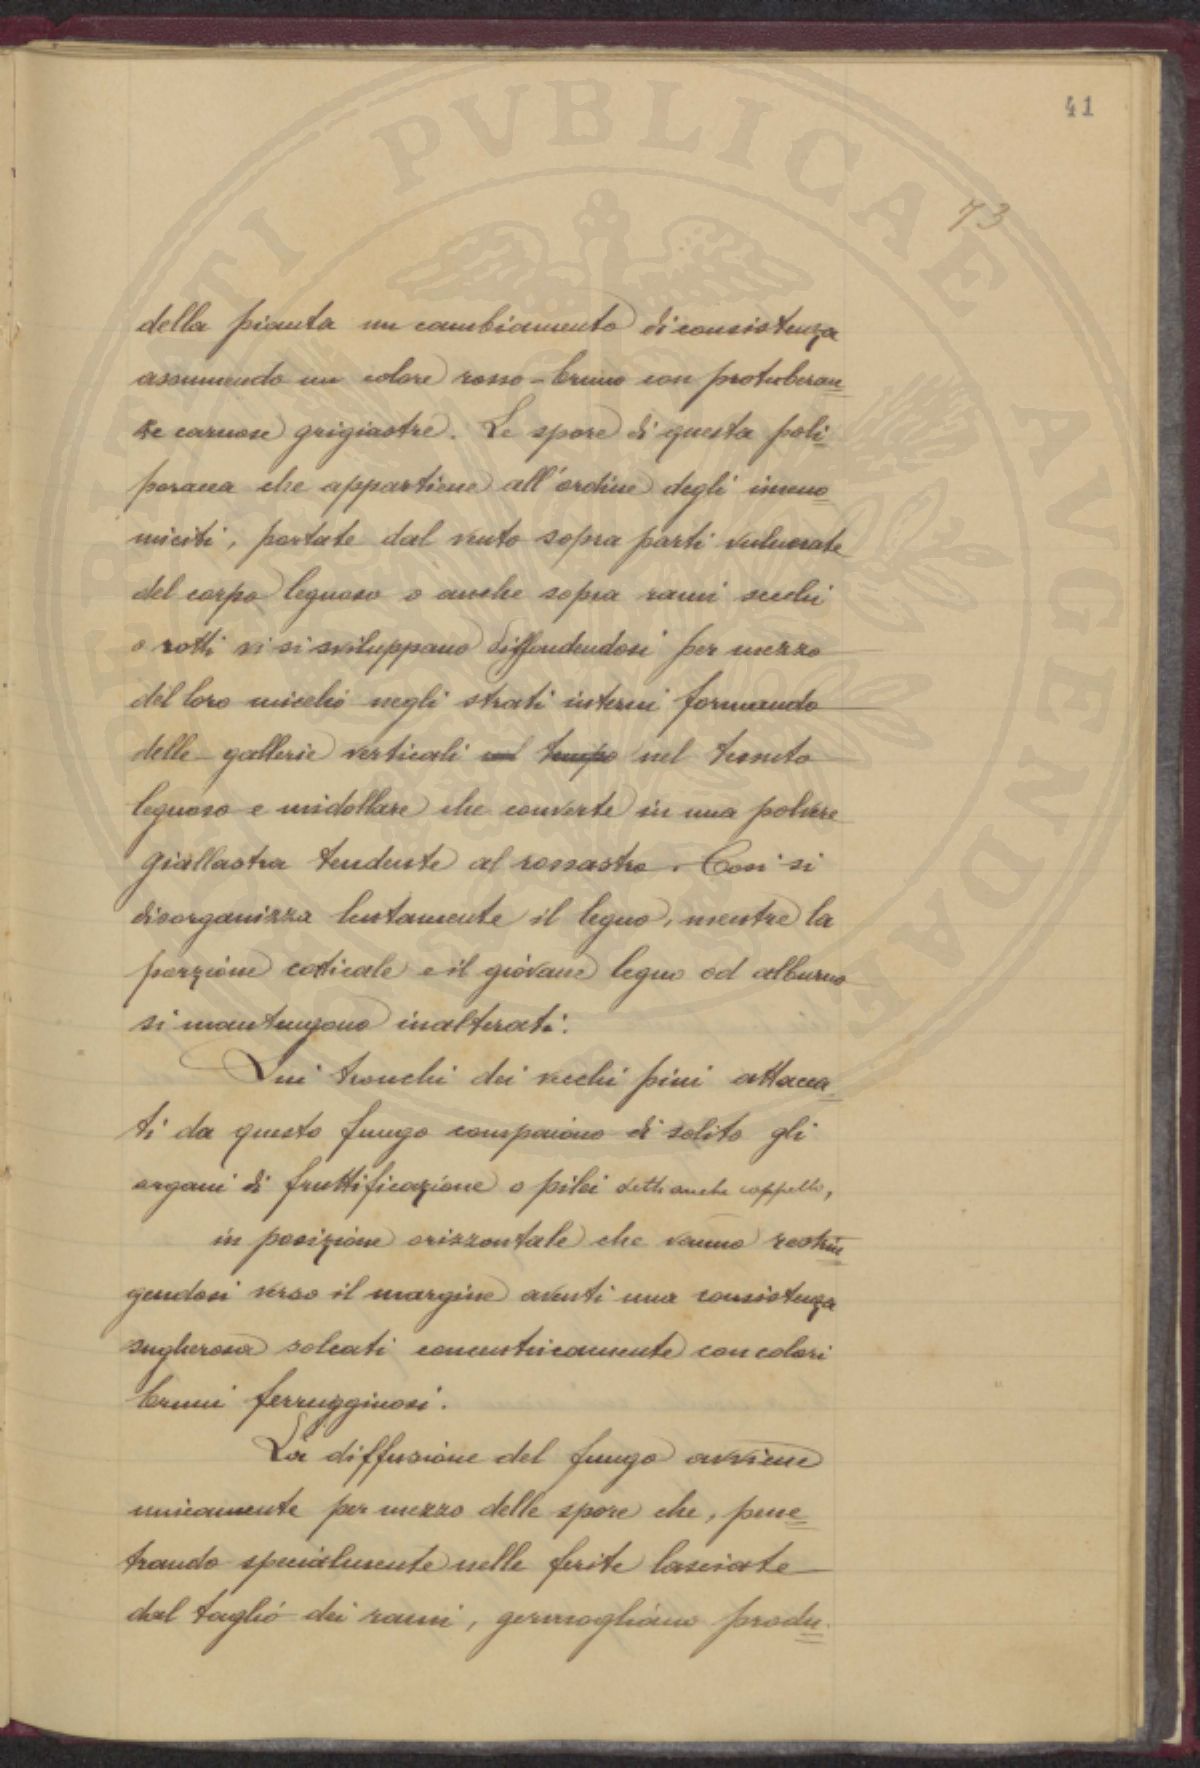 41
73
della pianta un cambiamento di consistenza
assumendo un colore rosso-bruno con protuberan=
ze carnose grigiastre. Le spore di questa poli=
poracea che appartiene all'ordine degli imeno=
miciti, portate dal vento sopra parti vulnerate
del corpo legnoso o anche sopra rami secchi
o rotti vi si sviluppano diffondendosi per mezzo
del loro micelio negli strati interni formando
delle gallerie verticali nel tempo nel tessuto
legnoso e midollare che converte in una polvere
giallastra tendente al rossastro. Così si
disorganizza lentamente il legno, mentre la
porzione corticale e il giovane legno od alburno
si mantengono inalterati.
Sui tronchi dei vecchi pini attacca=
ti da questo fungo compaiono di solito gli
organi di fruttificazione o pilei detti anche cappello,
in posizione orizzontale che vanno restrin=
gendosi verso il margine aventi una consistenza
sugherosa solcati concentricamente con colori
bruni ferrugginosi.
La diffusione del fungo avviene
unicamente per mezzo delle spore che, pene=
trando specialmente nelle ferite lasciate
dal taglio dei rami, germogliano produ=
PVBLICAE AVGENDAE